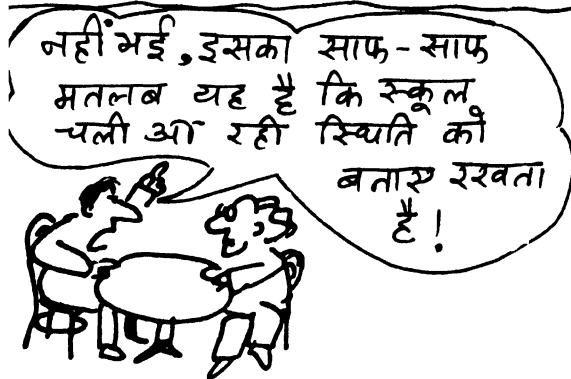 नहीं भई, इसका साफ-साफ
मतलब यह है कि स्कूल
चली आ रही स्थिति को
बनाए रखता
है!